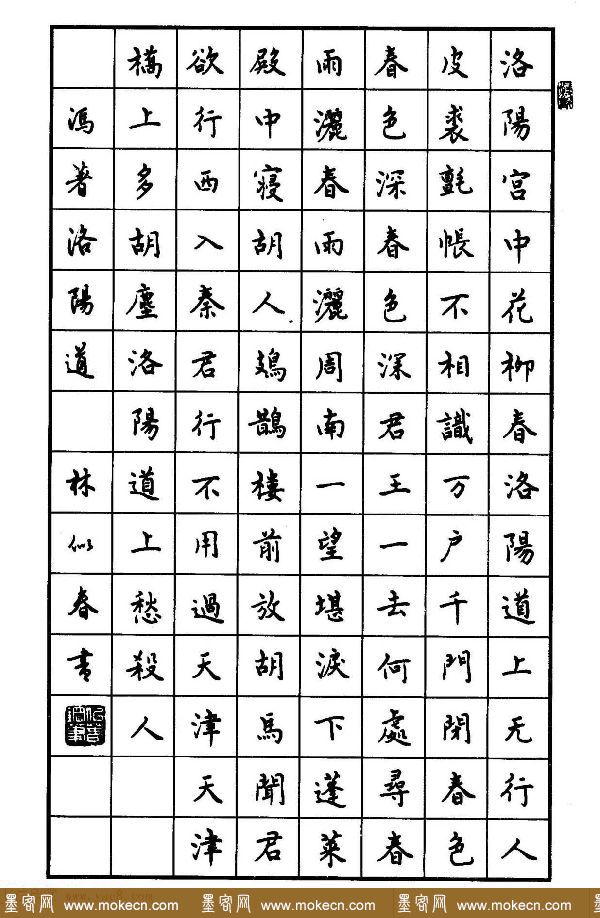 洛陽宮中花柳春洛陽道上无行人
皮裘氈帳不相識万户千門閉春色
春色深春色深君王一去何處尋春
雨灑春雨灑周南一望堪淚下蓬萊
殿中寢胡人鳷鵲樓前放胡馬聞君
欲行西入秦君行不用過天津天津
橋上多胡塵洛陽道上愁殺人
馮著洛陽道 林似春書
墨客网 www.mokecn.com 墨客网 www.mokecn.com 墨客网 www.mokecn.com 墨客网 www.mokecn.com